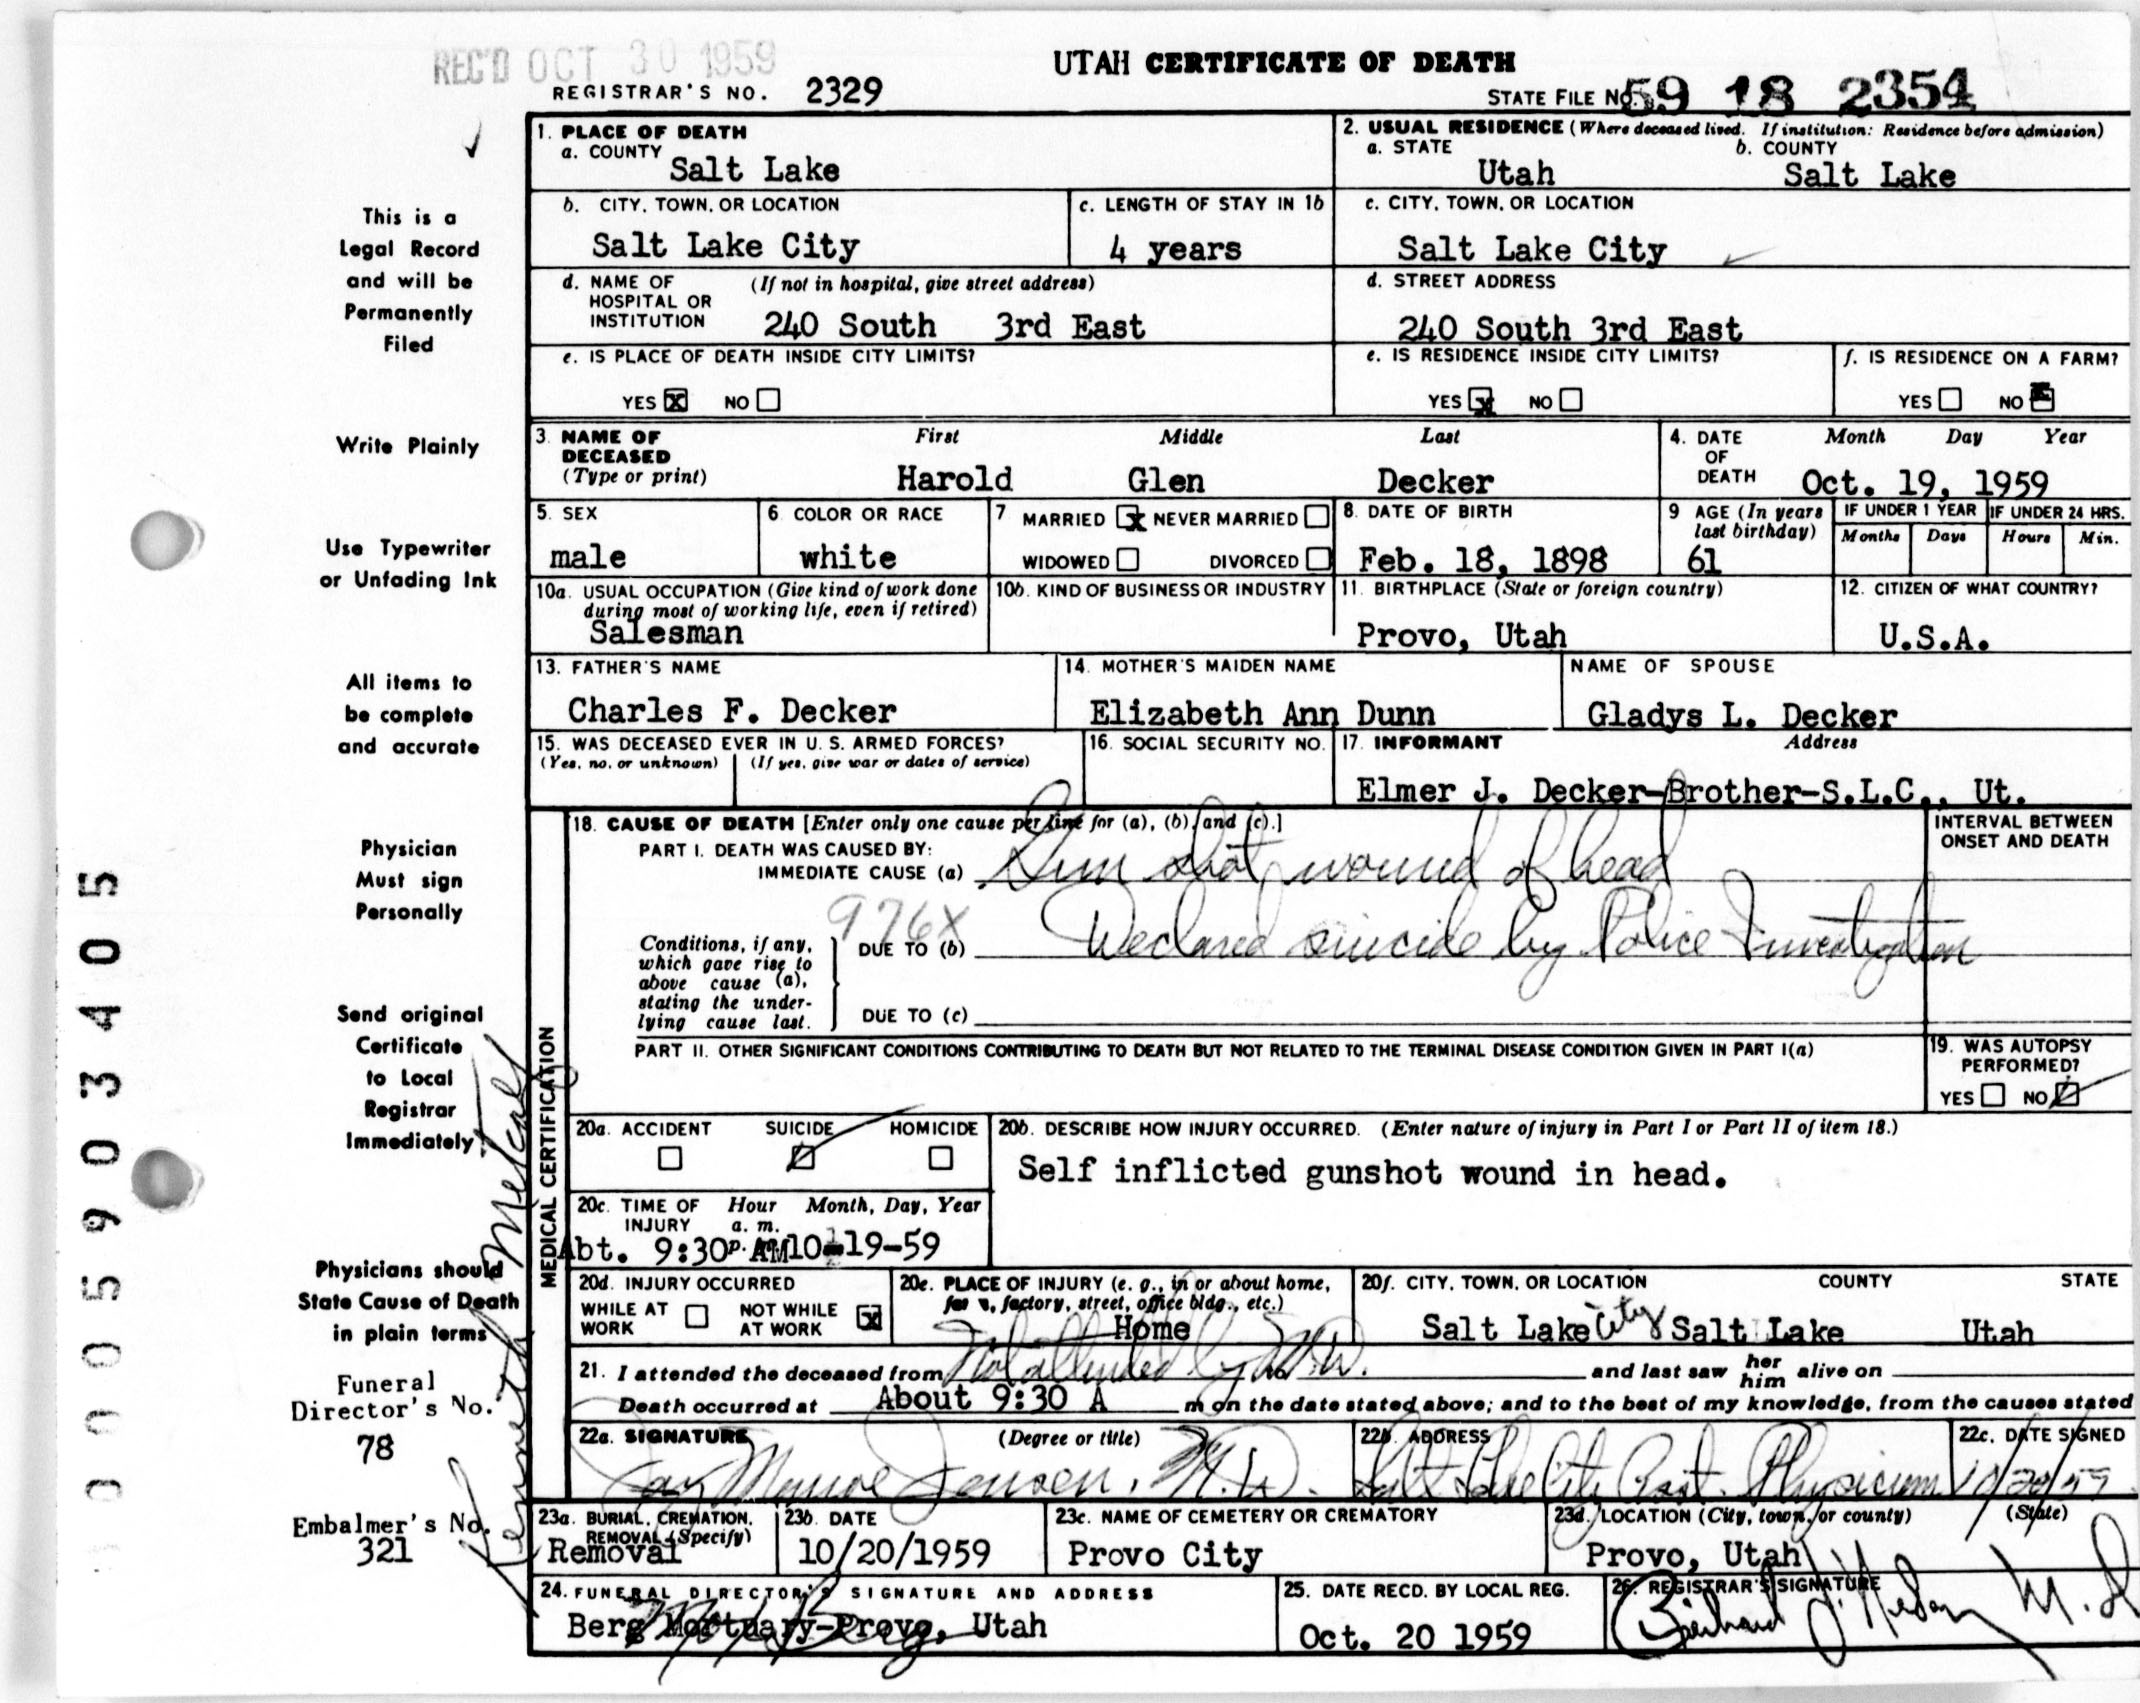 REC'D OCT 30 1959
UTAH CERTIFICATE OF DEATH
REGISTRAR'S NO. 2329
STATE FILE NO. 59 18 2354
This is a
Legal Record
and will be
Permanently
Filed
Write Plainly
Use Typewriter
or Unfading Ink
All items to
be complete
and accurate
Physician
Must sign
Personally
Send original
Certificate
to Local
Registrar
Immediately
Physicians should
State Cause of Death
in plain terms
Funeral
Director's No.
78
Embalmer's No.
321
Kenneth
005903405
1. PLACE OF DEATH
a. COUNTY
Salt Lake
2. USUAL RESIDENCE (Where deceased lived. If institution: Residence before admission)
a. STATE b. COUNTY
Utah Salt Lake
b. CITY, TOWN, OR LOCATION
Salt Lake City
c. LENGTH OF STAY IN 1b
4 years
c. CITY, TOWN, OR LOCATION
Salt Lake City
d. NAME OF (If not in hospital, give street address)
HOSPITAL OR
INSTITUTION 240 South 3rd East
d. STREET ADDRESS
240 South 3rd East
e. IS PLACE OF DEATH INSIDE CITY LIMITS?
YES X NO
e. IS RESIDENCE INSIDE CITY LIMITS?
YES X NO
f. IS RESIDENCE ON A FARM?
YES NO
3. NAME OF First Middle Last
DECEASED
(Type or print) Harold Glen Decker
4. DATE Month Day Year
OF
DEATH Oct. 19, 1959
5. SEX
male
6. COLOR OR RACE
white
7 MARRIED X NEVER MARRIED
WIDOWED DIVORCED
8. DATE OF BIRTH
Feb. 18, 1898
9 AGE (In years
last birthday)
61
IF UNDER 1 YEAR
Months Days
IF UNDER 24 HRS.
Hours Min.
10a. USUAL OCCUPATION (Give kind of work done
during most of working life, even if retired)
Salesman
10b. KIND OF BUSINESS OR INDUSTRY
11. BIRTHPLACE (State or foreign country)
Provo, Utah
12. CITIZEN OF WHAT COUNTRY?
U.S.A.
13. FATHER'S NAME
Charles F. Decker
14. MOTHER'S MAIDEN NAME
Elizabeth Ann Dunn
NAME OF SPOUSE
Gladys L. Decker
15. WAS DECEASED EVER IN U. S. ARMED FORCES?
(Yes, no, or unknown) (If yes, give war or dates of service)
16. SOCIAL SECURITY NO.
17. INFORMANT Address
Elmer J. Decker-Brother-S.L.C., Ut.
MEDICAL CERTIFICATION
18. CAUSE OF DEATH [Enter only one cause per line for (a), (b), and (c).]
PART I. DEATH WAS CAUSED BY:
IMMEDIATE CAUSE (a) Gun shot wound of head
976X
Conditions, if any,
which gave rise to
above cause (a),
stating the under-
lying cause last.
DUE TO (b) Declared suicide by Police Investigation
DUE TO (c)
INTERVAL BETWEEN
ONSET AND DEATH
PART II. OTHER SIGNIFICANT CONDITIONS CONTRIBUTING TO DEATH BUT NOT RELATED TO THE TERMINAL DISEASE CONDITION GIVEN IN PART I(a)
19. WAS AUTOPSY
PERFORMED?
YES NO
20a. ACCIDENT SUICIDE HOMICIDE
20b. DESCRIBE HOW INJURY OCCURRED. (Enter nature of injury in Part I or Part II of item 18.)
Self inflicted gunshot wound in head.
20c. TIME OF Hour Month, Day, Year
INJURY a. m.
Abt. 9:30 p. AM 10-19-59
20d. INJURY OCCURRED
WHILE AT WORK NOT WHILE AT WORK X
20e. PLACE OF INJURY (e. g., in or about home,
factory, street, office bldg., etc.)
Home
20f. CITY, TOWN, OR LOCATION COUNTY STATE
Salt Lake City Salt Lake Utah
21. I attended the deceased from Not attended by M.D. and last saw her him alive on
Death occurred at About 9:30 A m on the date stated above; and to the best of my knowledge, from the causes stated
22a. SIGNATURE (Degree or title)
Jay Monroe Jensen, M.D.
22b. ADDRESS
Salt Lake City Asst. Physician
22c. DATE SIGNED
10/20/59
23a. BURIAL, CREMATION,
REMOVAL (Specify)
Removal
23b. DATE
10/20/1959
23c. NAME OF CEMETERY OR CREMATORY
Provo City
23d. LOCATION (City, town, or county) (State)
Provo, Utah
24. FUNERAL DIRECTOR'S SIGNATURE AND ADDRESS
Berg Mortuary-Provo, Utah
25. DATE RECD. BY LOCAL REG.
Oct. 20 1959
26. REGISTRAR'S SIGNATURE
M.D.